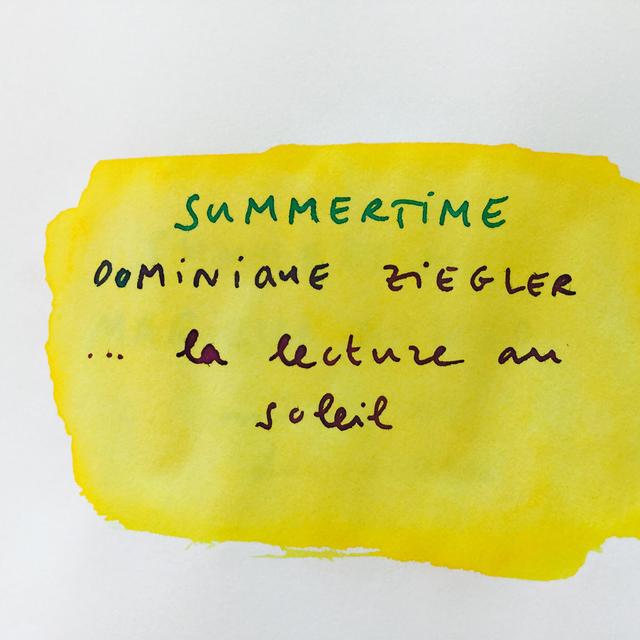 SUMMERTiME
DOMiNiQUE ZiEGLER
... la lecture au
soleil